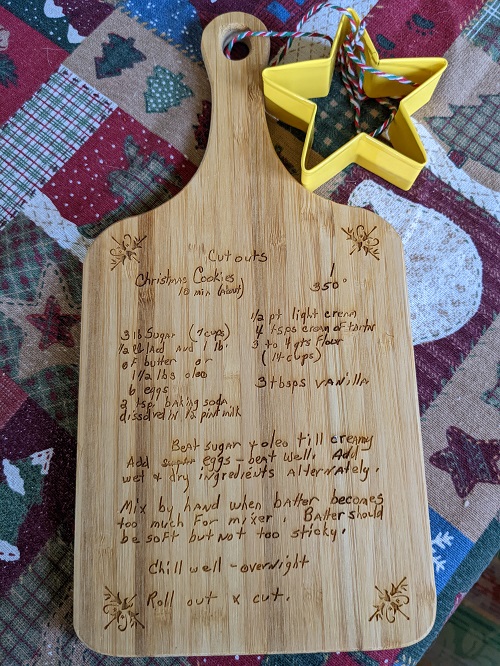 Cut outs
Christmas Cookies
350°
10 min (about)
3 lb Sugar (7 cups)
1/2 lb lard and 1 lb
of butter or
1 1/2 lbs oleo
6 eggs
2 tsp. baking soda
dissolved in .5 pint milk
1/2 pt light cream
4 tsps cream of tartar
3 to 4 qts flour
(14 cups)
3 tbsps vanilla
Beat sugar & oleo till creamy
Add sugar eggs - beat well. Add
wet & dry ingredients alternately.
Mix by hand when batter becomes
too much for mixer. Batter should
be soft but not too sticky.
Chill well - overnight
Roll out & cut.